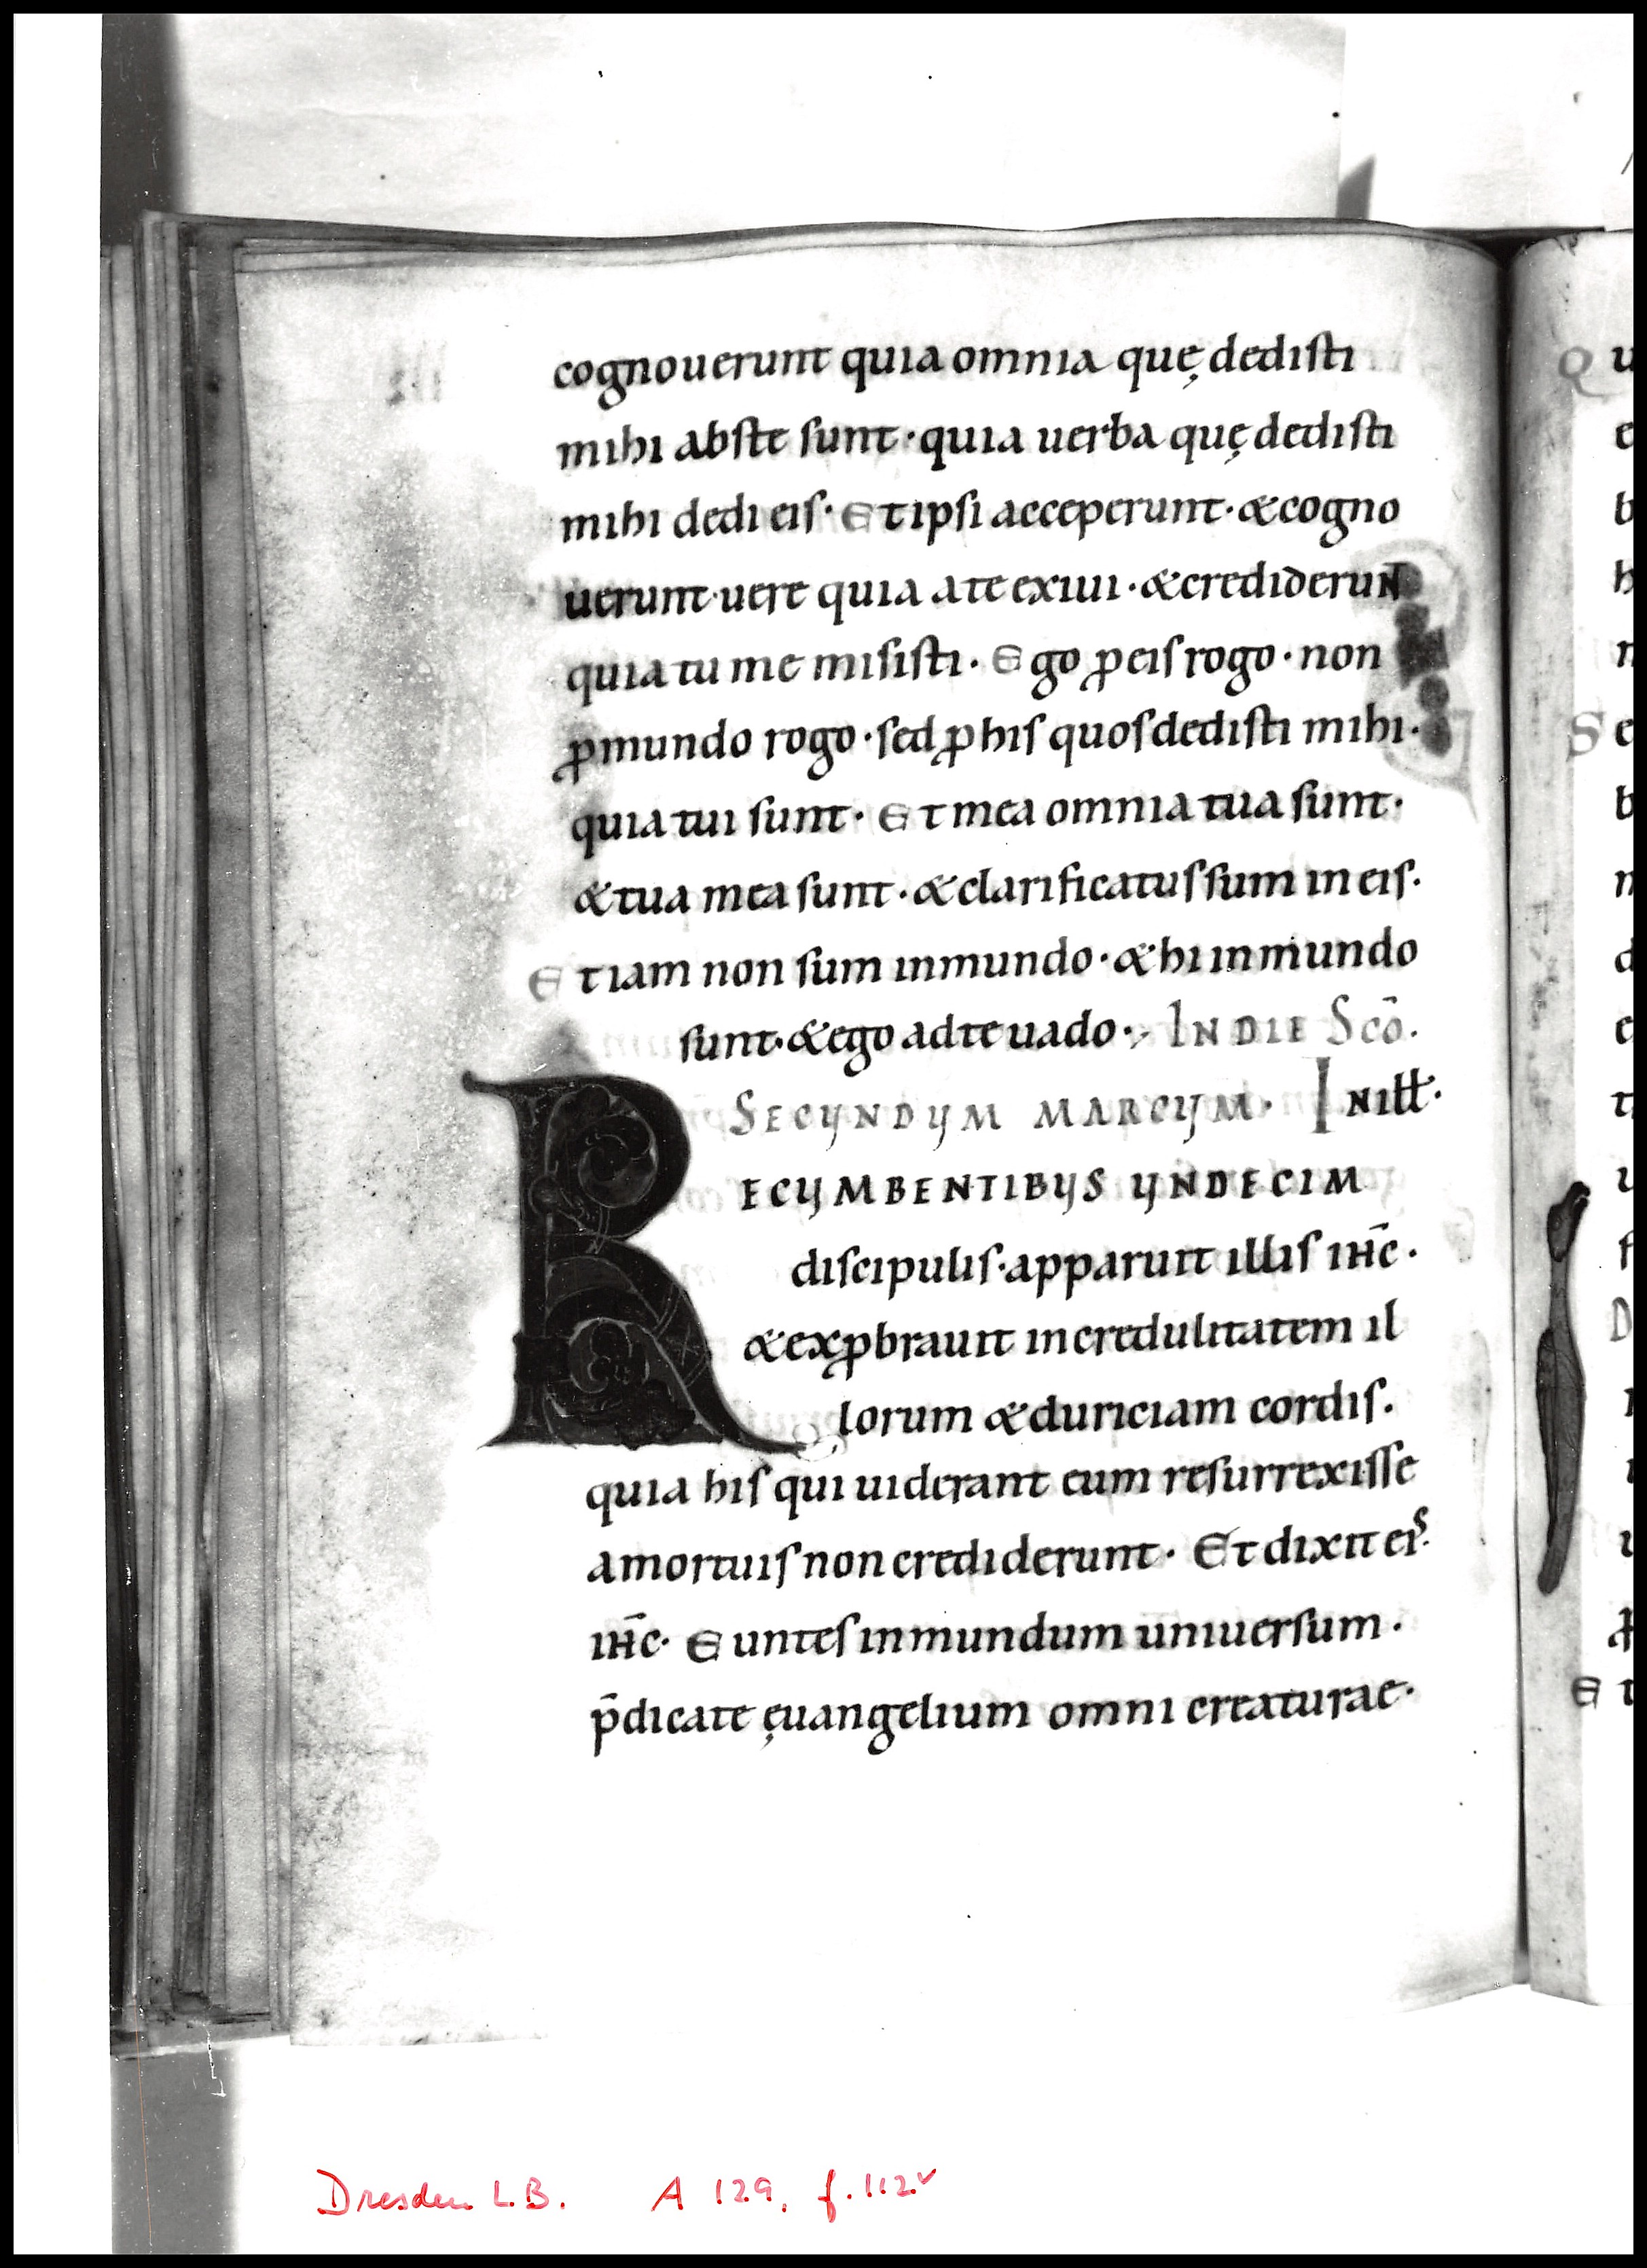 cognouerunt quia omnia quę dedisti
mihi abste sunt · quia uerba quę dedisti
mihi dedi eis · Et ipsi acceperunt · & cogno
uerunt · uere quia ate exiui · & crediderunt
quia tu me misisti · Ego ꝓ eis rogo · non
ꝓ mundo rogo · sed ꝓ his quos dedisti mihi ·
quia tui sunt · Et mea omnia tua sunt ·
& tua mea sunt · & clarificatus sum in eis ·
Et iam non sum in mundo · & hi in mundo
sunt · & ego ad te uado · IN DIE Scō.
SECUNDUM MARCUM · IN iłł ·
RECUMBENTIBUS UNDECIM
discipulis · apparuit illis ih̄c ·
& exꝓbrauit incredulitatem il
lorum & duriciam cordis ·
quia his qui uiderant eum resurrexisse
amortuis non crediderunt · Et dixit eis ·
ih̄c · Euntes in mundum uniuersum ·
p̄dicate ęuangelium omni creaturae ·
Dresden L.B. A 129, f. 112v